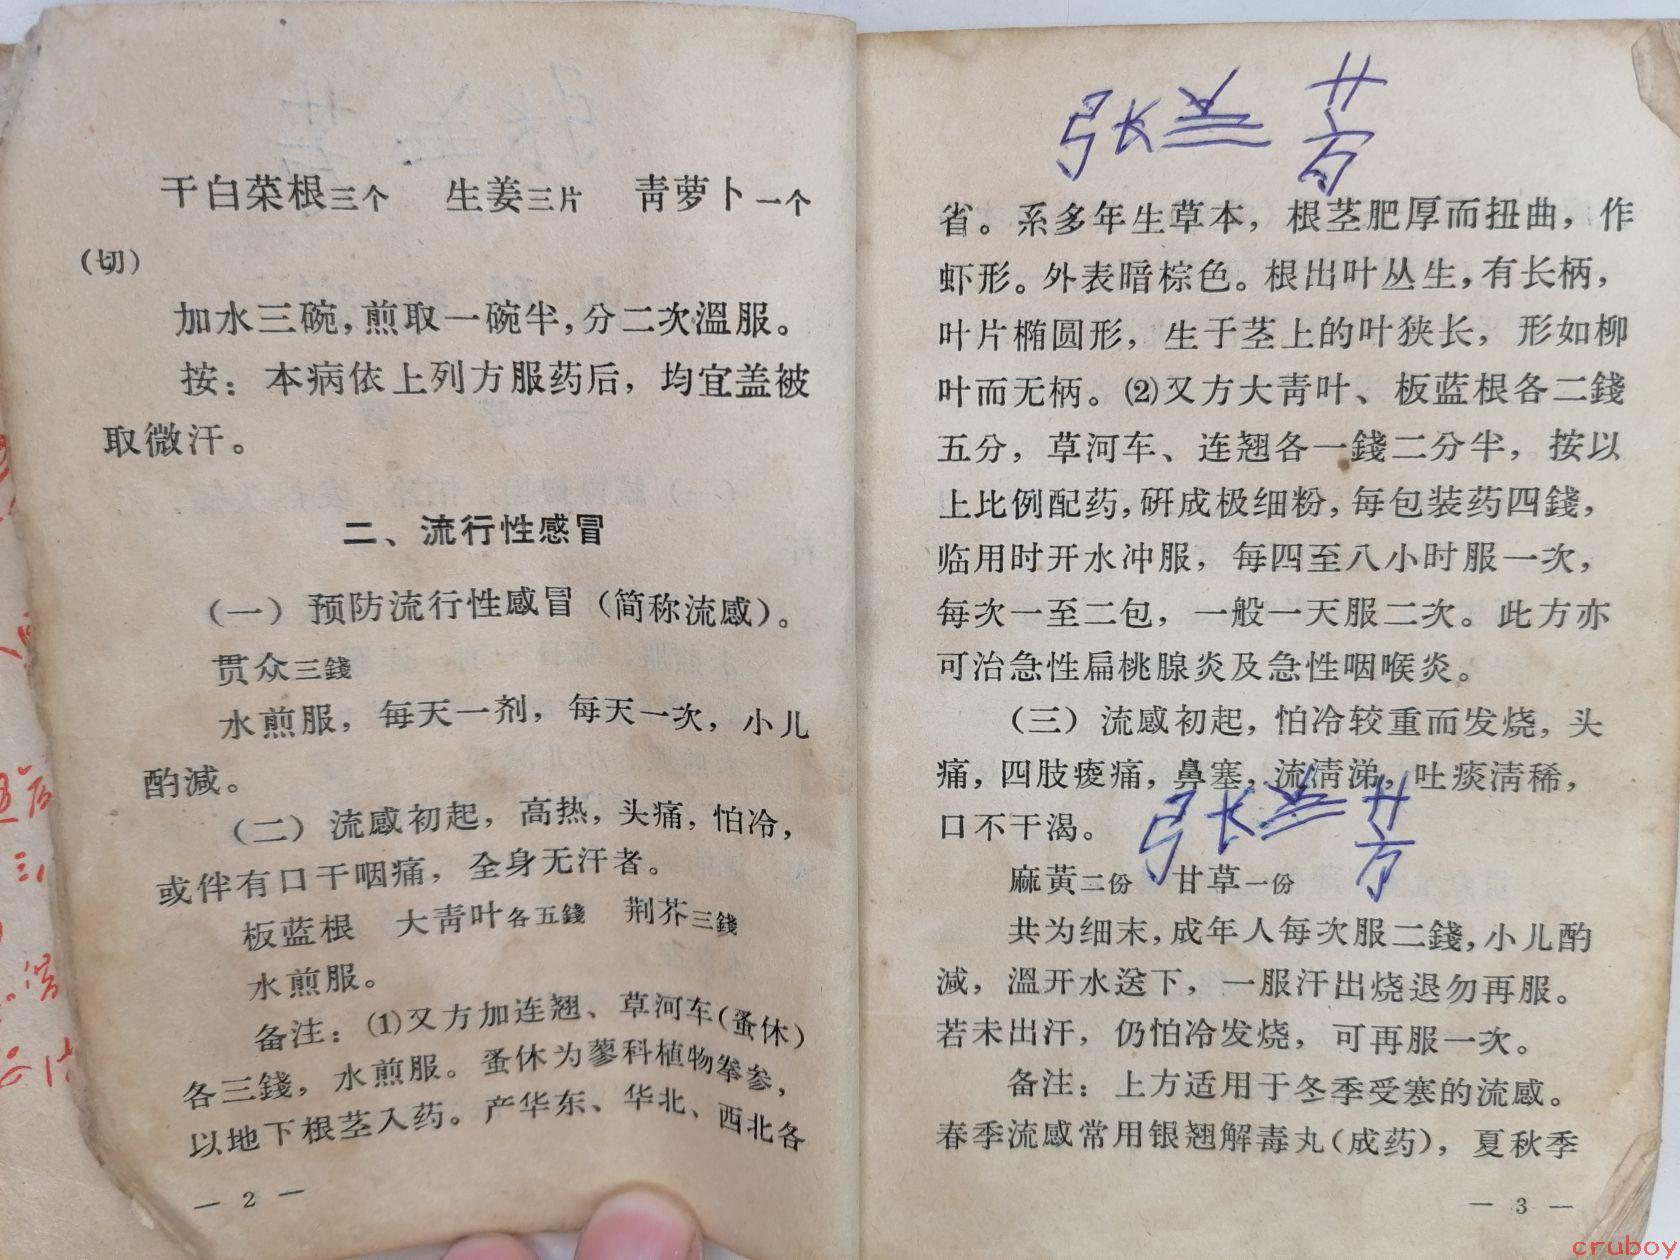 干白菜根三个 生姜三片 青萝卜一个
(切)
加水三碗,煎取一碗半,分二次温服。
按：本病依上列方服药后，均宜盖被
取微汗。
二、流行性感冒
(一)预防流行性感冒(简称流感)。
贯众三錢
水煎服，每天一剂，每天一次，小儿
酌减。
(二)流感初起，高热，头痛，怕冷，
或伴有口干咽痛，全身无汗者。
板蓝根 大青叶各五錢 荆芥三錢
水煎服。
备注：⑴又方加连翘、草河车(蚤休)
各三錢，水煎服。蚤休为蓼科植物拳参，
以地下根茎入药。产华东、华北、西北各
— 2 —
张兰芳
省。系多年生草本，根茎肥厚而扭曲，作
虾形。外表暗棕色。根出叶丛生，有长柄，
叶片椭圆形，生于茎上的叶狭长，形如柳
叶而无柄。⑵又方大青叶、板蓝根各二錢
五分，草河车、连翘各一錢二分半，按以
上比例配药，研成极细粉，每包装药四錢，
临用时开水冲服，每四至八小时服一次，
每次一至二包，一般一天服二次。此方亦
可治急性扁桃腺炎及急性咽喉炎。
(三)流感初起，怕冷较重而发烧，头
痛，四肢痠痛，鼻塞，流清涕，吐痰清稀，
口不干渴。
张兰芳
麻黄二份 甘草一份
共为细末，成年人每次服二錢，小儿酌
减，温开水送下，一服汗出烧退勿再服。
若未出汗，仍怕冷发烧，可再服一次。
备注：上方适用于冬季受寒的流感。
春季流感常用银翘解毒丸(成药)，夏秋季
— 3 —
cruboy